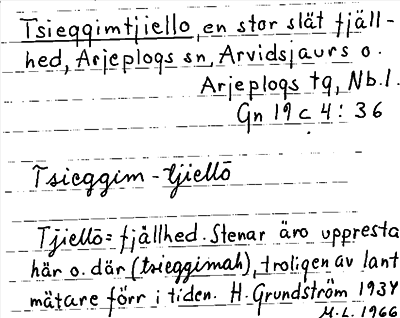 Tsieggimtjiello, en stor slät fjäll-
hed, Arjeplogs sn, Arvidsjaurs o.
Arjeplogs tg, Nb.l.
Gn 19 c 4: 36
Tsieggim-tjiellō
Tjiellō = fjällhed. Stenar äro uppresta
här o. där (tsieggimah), troligen av lant
mätare förr i tiden. H. Grundström 1934
M.L. 1966